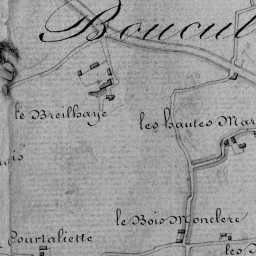 Boucul
le Breilhaye
les hautes Mar
le Bois Monclerc
Courtaliette
les